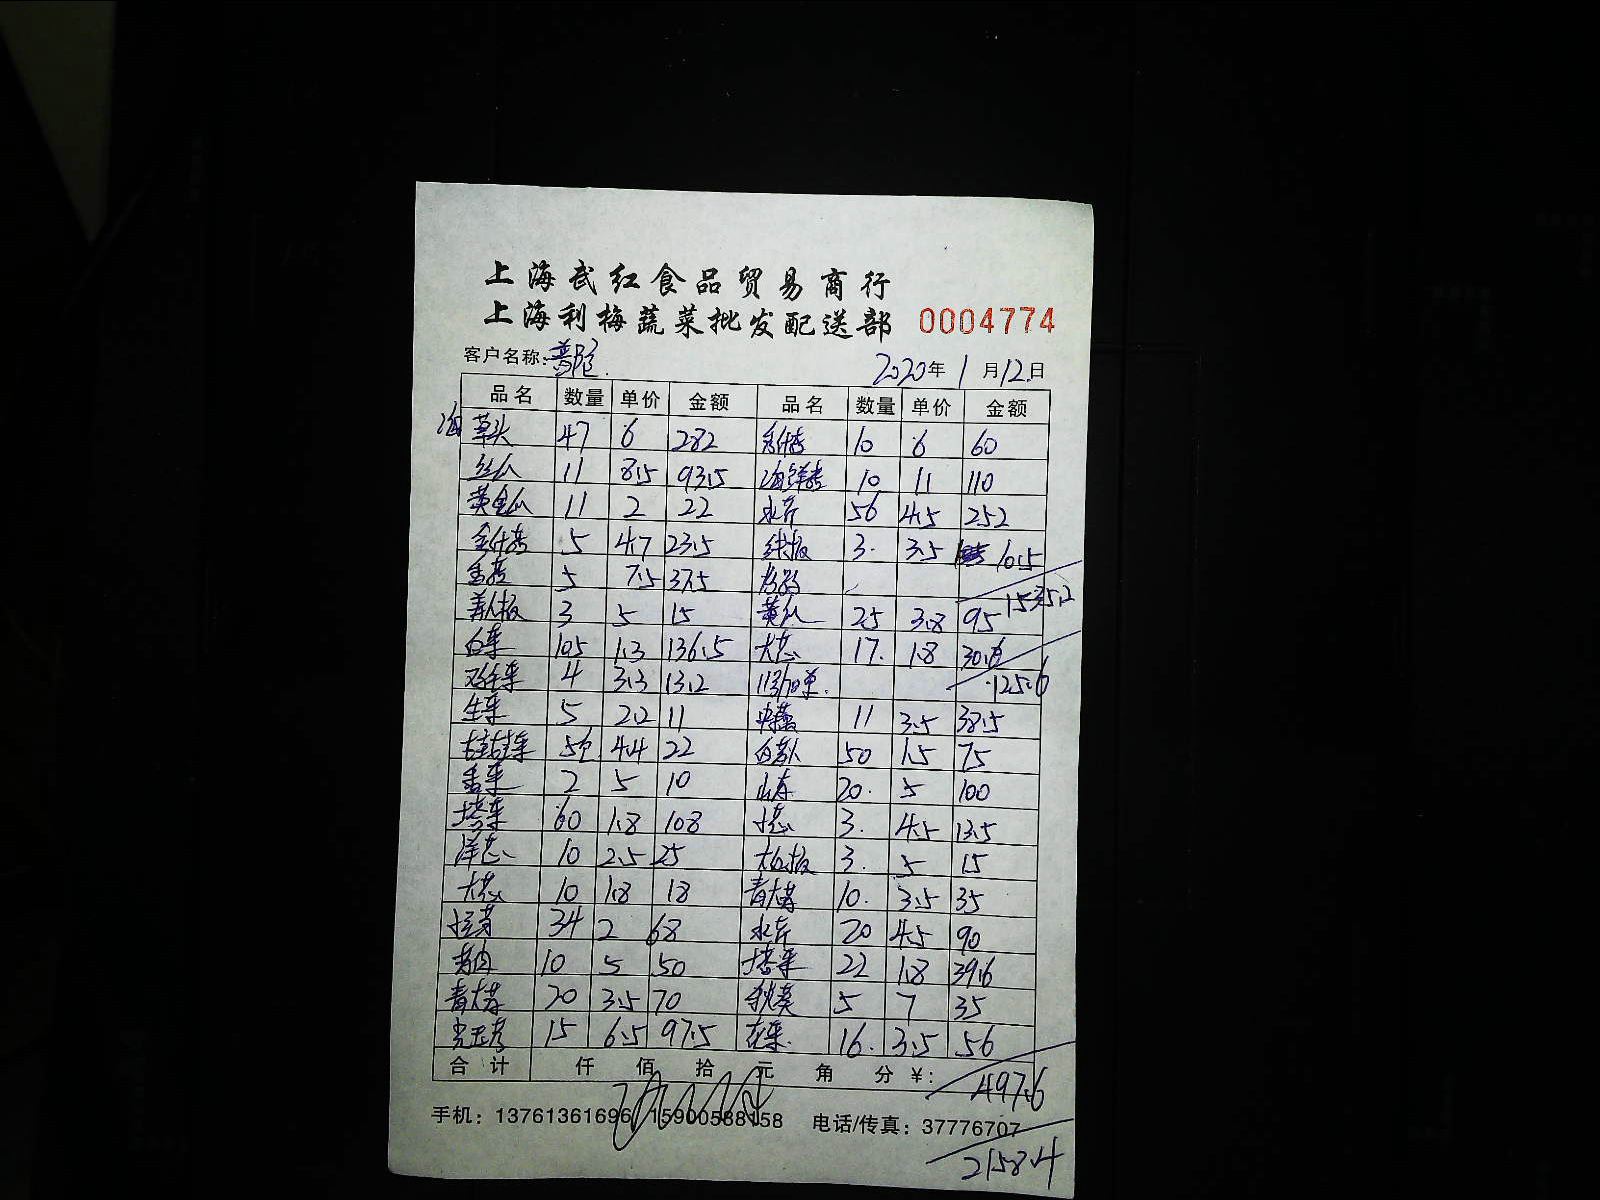 上海武红食品贸易商行
上海利梅蔬菜批发配送部 0004774
客户名称: 普陀 2020年1月12日
品名 数量 单价 金额 品名 数量 单价 金额
海 草头 47 6 282 10 6 60
丝瓜 11 8.5 93.5 海鲜菇 10 11 110
黄金瓜 11 2 22 水芹 56 4.5 252
金针菇 5 4.7 23.5 3. 3.5 10.5
香菇 5 7.5 37.5
3 5 15 黄瓜 25 3.8 95 1535.2
白菜 105 1.3 136.5 大葱 17. 1.8 30.6
鸡毛菜 4 3.3 13.2 125.6
生菜 5 2.2 11 11 3.5 38.5
5 4.4 22 白萝卜 50 1.5 75
香菜 2 5 10 山药 20. 5 100
塔菜 60 1.8 108 3. 4.5 13.5
洋葱 10 2.5 25 3. 5 15
大葱 10 1.8 18 青大椒 10. 3.5 35
34 2 68 水芹 20 4.5 90
10 5 50 塔菜 22 1.8 39.6
青大椒 20 3.5 70 秋葵 5 7 35
15 6.5 97.5 花菜 16. 3.5 56
合计 仟 佰 拾 元 角 分 ¥: 497.6
手机: 13761361696 15900588158 电话/传真: 37776707
2158.4